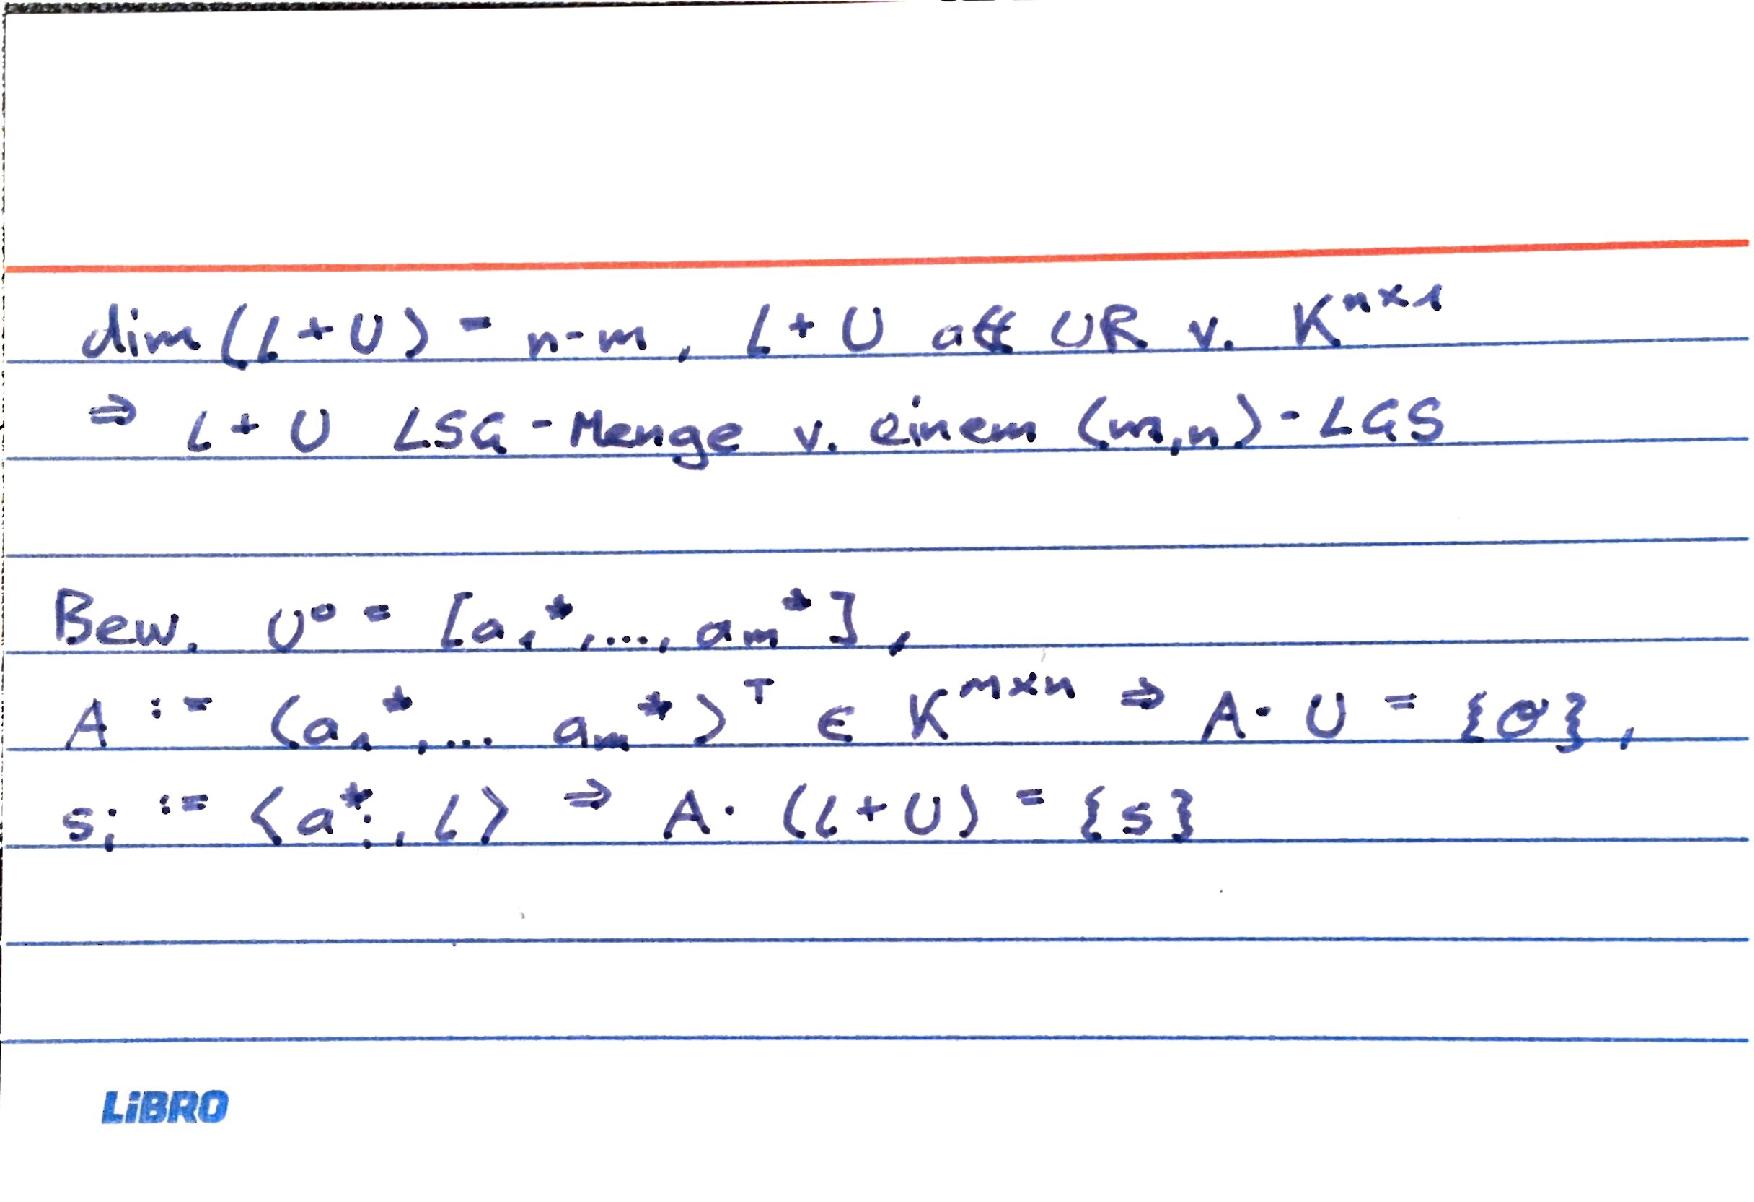 dim (l + U) = n-m, l + U aff UR v. K^{n×1}
⇒ l + U LSG-Menge v. einem (m,n)-LGS
Bew. U° = [a₁*,..., aₘ*],
A := (a₁*,... aₘ*)ᵀ ∈ K^{m×n} ⇒ A· U = {𝒪},
sᵢ := ⟨a*ᵢ, l⟩ ⇒ A· (l+U) = {s}
LiBRO